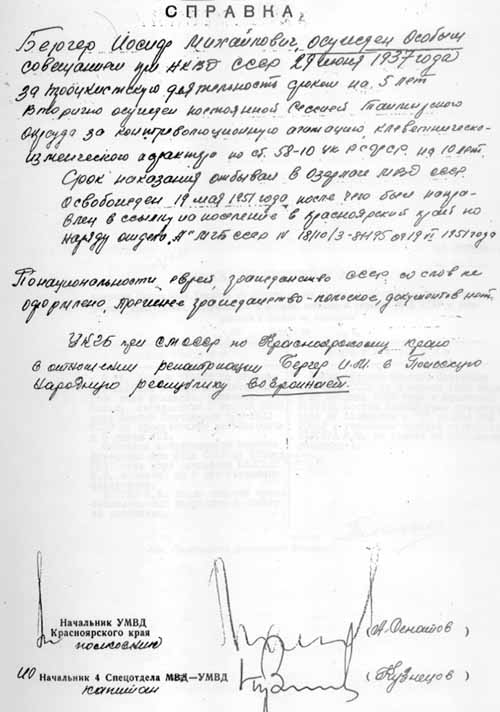 СПРАВКА
Бергер Иосиф Михайлович, осужден Особым
совещанием при НКВД СССР 29 июня 1937 года
за троцкистскую деятельность сроком на 5 лет
Вторично осужден постоянной Сессией Таймырского
Окрсуда за контрреволюционную агитацию, клеветническо-
изменческого характера по ст. 58-10 УК РСФСР на 10 лет.
Срок наказания отбывал в Озерлаге МВД СССР.
Освобожден 19 мая 1951 года, после чего был направ-
лен в ссылку на поселение в Красноярский край по
наряду отдела "А" МГБ СССР N от 19 1951 года
По национальности еврей, гражданство СССР со слов не
оформлено, прежнее гражданство-польское, документов нет.
УКГБ при СМ СССР по Красноярскому краю
в отношении репатриации Бергер И.М. в Польскую
Народную республику возражает.
Начальник УМВД
Красноярского края
полковник
(А. )
ИО Начальник 4 Спецотдела МВД—УМВД
капитан
(Кузнецов)